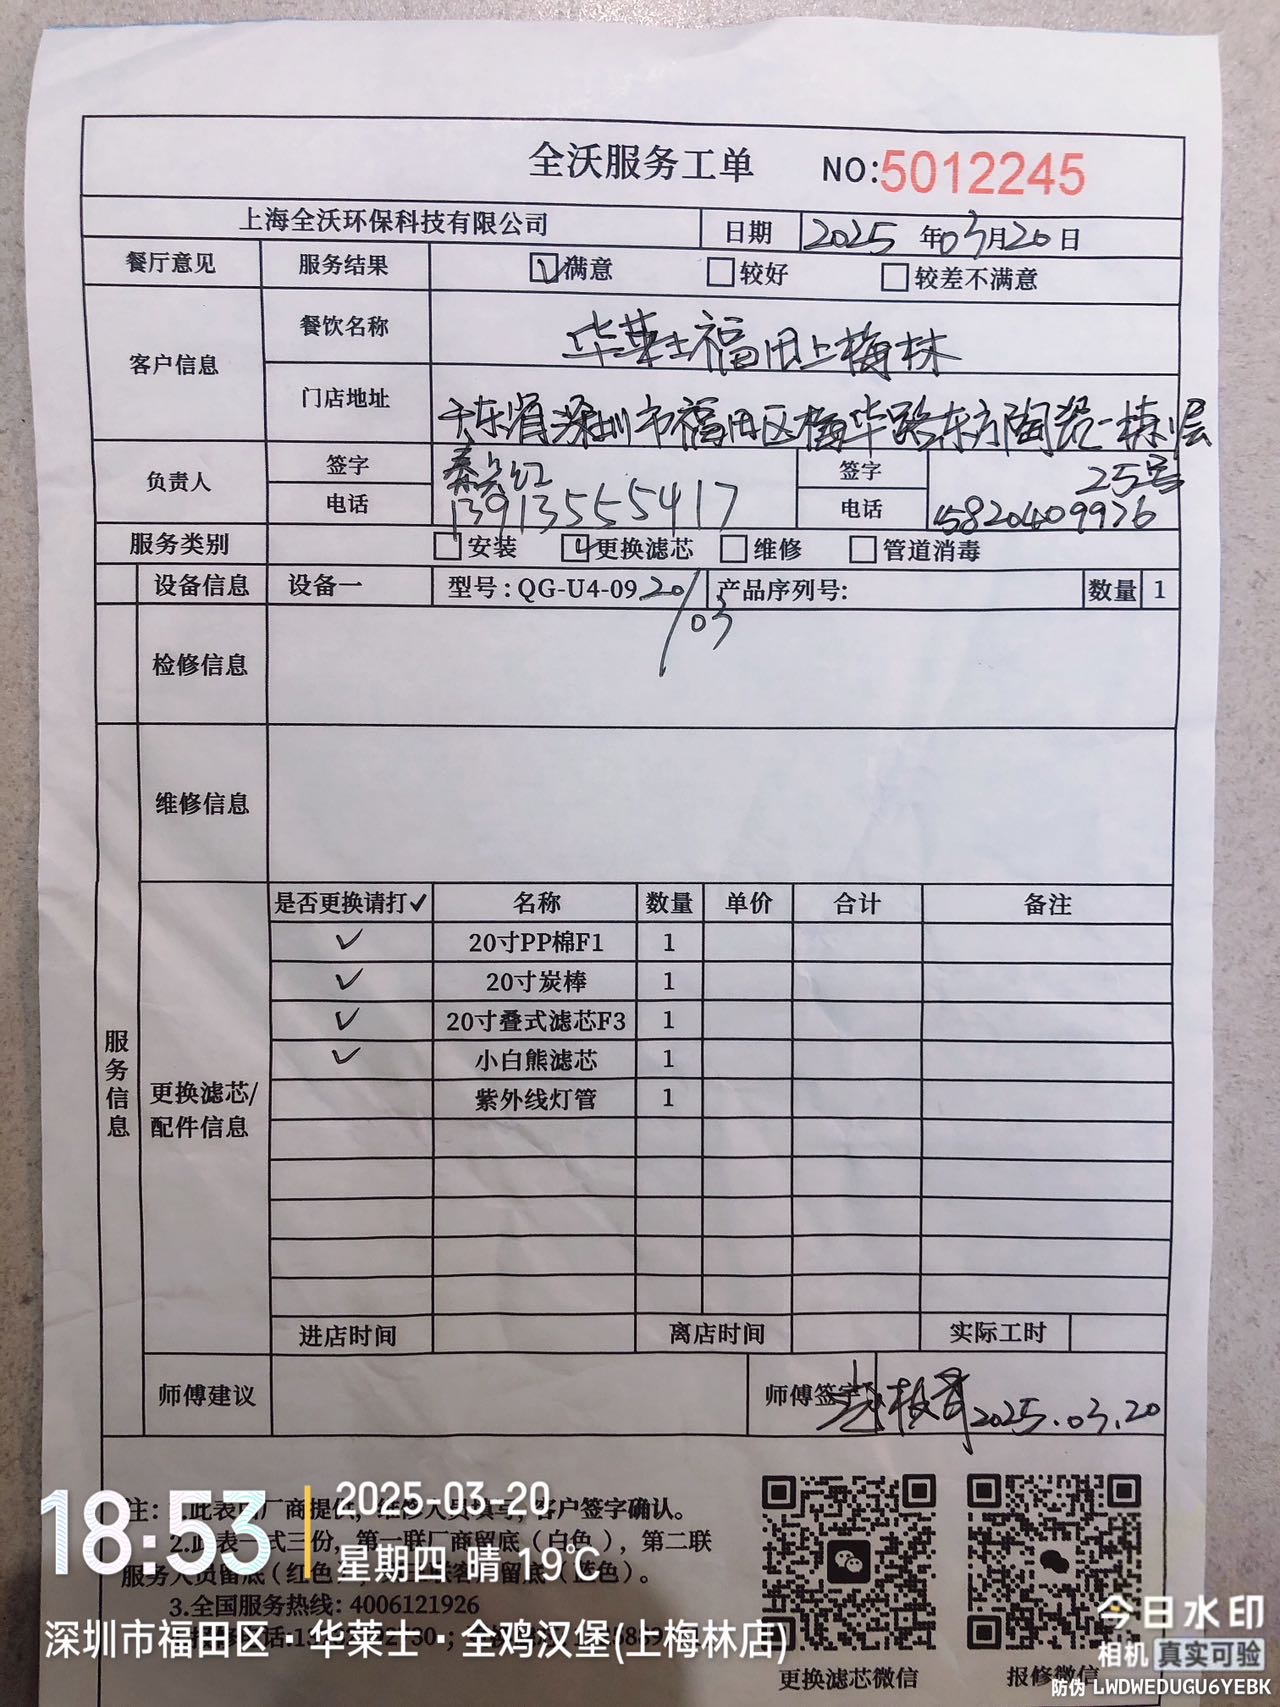 全沃服务工单 NO:5012245
上海全沃环保科技有限公司 日期 2025年03月20日
餐厅意见 服务结果 满意 较好 较差不满意
客户信息 餐饮名称 华莱士福田上梅林
门店地址 广东省深圳市福田区梅华路东方陶瓷一栋1层
25号
负责人 签字 签字
电话 13913555417 电话 15820409926
服务类别 安装 更换滤芯 维修 管道消毒
设备信息 设备一 型号:QG-U4-09 20/03 产品序列号: 数量 1
检修信息
维修信息
服务信息
更换滤芯/
配件信息
是否更换请打✓ 名称 数量 单价 合计 备注
✓ 20寸PP棉F1 1
✓ 20寸炭棒 1
✓ 20寸叠式滤芯F3 1
✓ 小白熊滤芯 1
紫外线灯管 1
进店时间 离店时间 实际工时
师傅建议 师傅签字 2025.03.20
注: 1.此表由厂商提供,维修人员填写,客户签字确认。
2.此表一式三份,第一联厂商留底(白色),第二联
服务人员留底(红色), 留底(蓝色)。
3.全国服务热线: 4006121926
更换滤芯微信 报修微信
18:53 2025-03-20
星期四 晴 19℃
深圳市福田区·华莱士·全鸡汉堡(上梅林店)
今日水印
相机 真实可验
防伪 LWDWEDUGU6YEBK